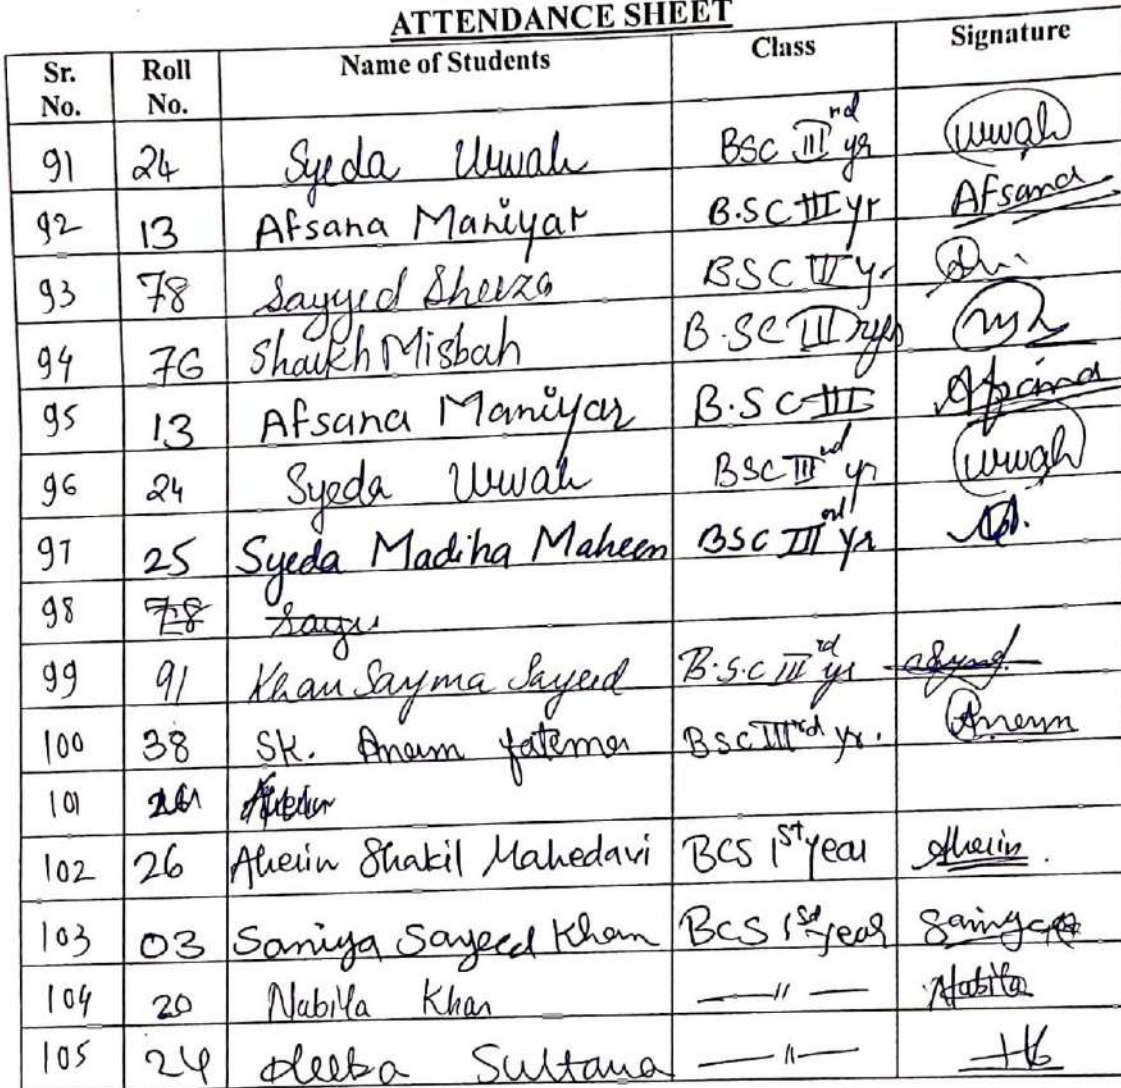 ATTENDANCE SHEET
Sr. No. Roll No. Name of Students Class Signature
91 24 Syeda Urwah BSC III rd yr Urwah
92 13 Afsana Maniyar B.SC III yr Afsana
93 78 Sayyed Sheiza BSC III yr
94 76 Shaikh Misbah B.SC III
95 13 Afsana Maniyar B.SC III Afsana
96 24 Syeda Urwah BSC III rd yr Urwah
97 25 Syeda Madiha Maheen BSC III rd yr
98 78 Sayy
99 91 Khan Sayma Sayeed B.S.C III rd yr
100 38 SK. Anam fatema BSC III rd yr.
101
102 26 Shakil Mahedavi BCS 1st year
103 03 Saniya Sayeed Khan BCS 1st year Saniya
104 20 Nabila Khan —"— Nabila
105 24 Deeba Sultana —"—